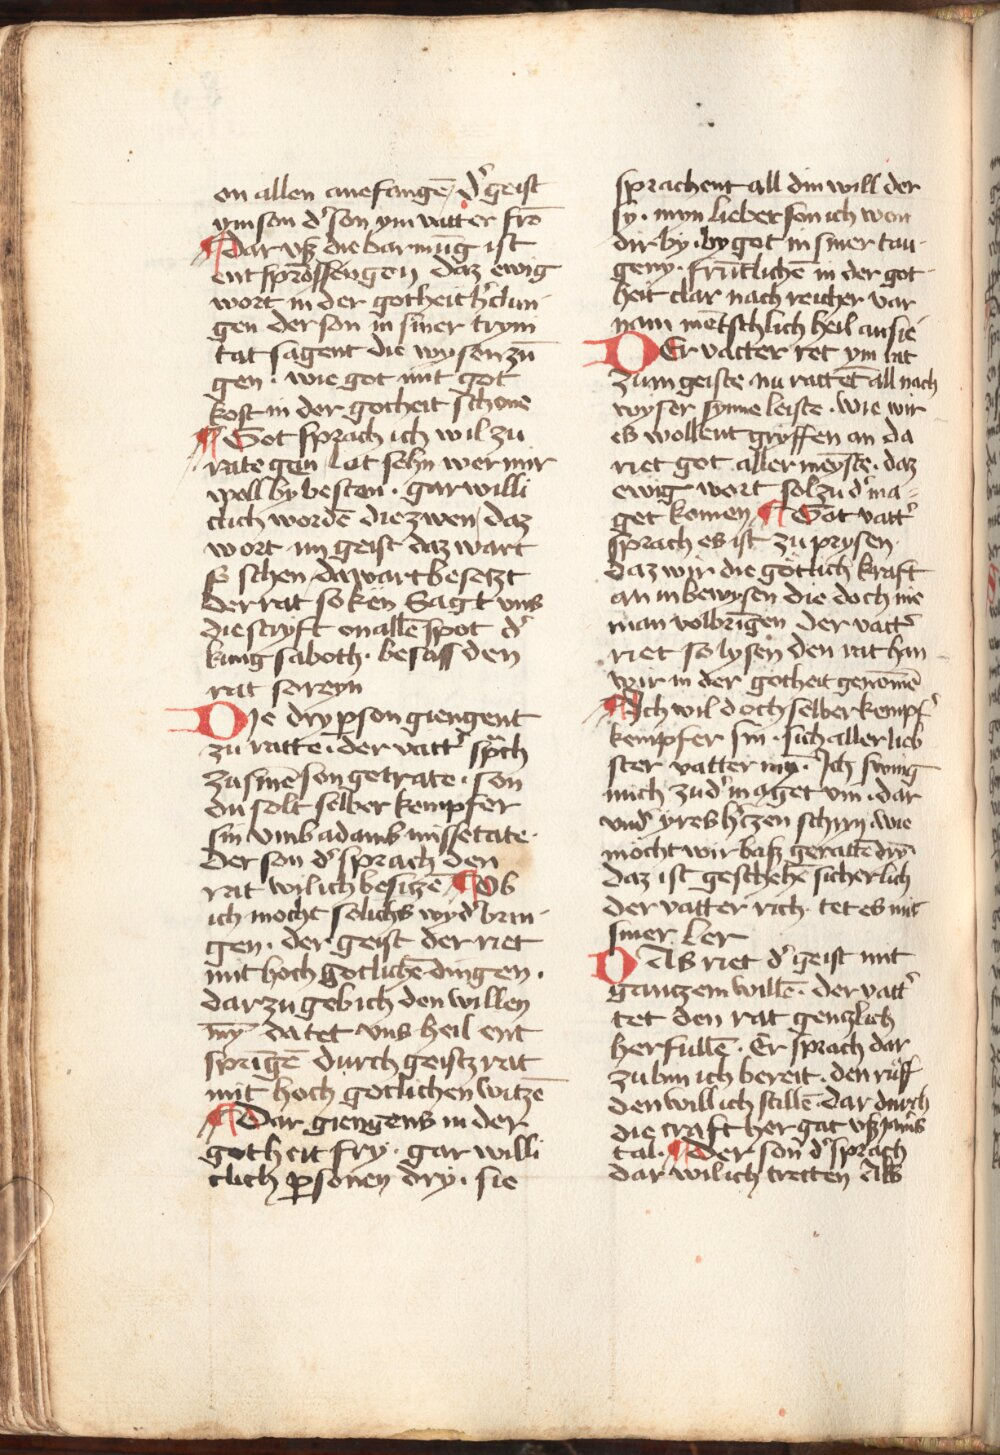 on allen anefangē / d᾽ geist
ym son d᾽ son ym vatter frō
¶ Dar vß die barmūg ist
entsprossengen daz ewig
wort in der gotheit h᾽dun-
gen der son in siner tryni
tat sagent die wysen zū
gen · wie got mit got
kost in der gotheit schone
¶ Got sprach ich wil zu
rate gan Lat sehn wer mir
woll by besten · gar willi
clich wordē die zwen / daz
wort im geist daz wart
so schen / da wart besetzt
der rat so ken Sagt vns
die scryft on allē spot d᾽
kung saboth · besass den
rat so reyn
Die dry ꝑson giengent
zu ratte · der vatt᾽ sprach
zu sinē son getrate · son
du solt selber kempfer
sin vmb adams missetate ·
Der son d᾽ sprach den
rat wil ich besitzē ¶ Ob
ich mocht solichs wyd᾽ brin-
gen · der geist der riet
mit hoch gotlichē dingen ·
dar zu geb ich den willen
my̅ da tet vns heil ent
sprīgē durch geistz rat
mit hoch gotlichen witzē
¶ Dar giengens in der
gotheit fry · gar willi
clich ꝑsonen dry · sie
sprachent all din will der
sy · myn lieber son ich won
dir by · by got in siner tau-
geny · frūtlichē in der got-
heit clar nach reicher var
nam mētschlich heil an sie
Der vatter ret ym rat
zum geiste · nu rattēt all nach
wyser synne leiste · wie wir
es wollent gryffen an da
riet got aller meyste · daz
ewig wort sol zu d᾽ ma-
get komen ¶ Got vatt᾽
sprach es ist zu prysen
daz wir die gotlich kraft
an in bewysen die doch nie
man volbrīgen der vatt᾽
riet so lysen den rat han
wir in der gotheit genomē
¶ Ich wil doch selber kempf᾽
kempfer sin · sich aller lieb
ster vatter my̅ · Ich swing
mich zu d᾽ maget vin · dar
vnd᾽ yres h᾽tzen schryn · wie
mocht wir baß gerattē dry̅
daz ist geschehē sicherlich
der vatter rich · tet es mit
siner Ler
Das riet d᾽ geist mit
gantzem willē · der vatt᾽
tet den rat gentzlich
herfullē · Er sprach dar
zu bin ich bereit · den ruff
den will ich stillē · dar durch
die craft her gat vß jam᾽s
tal · ¶ Der son d᾽ sprach
dar wil ich tretten Als